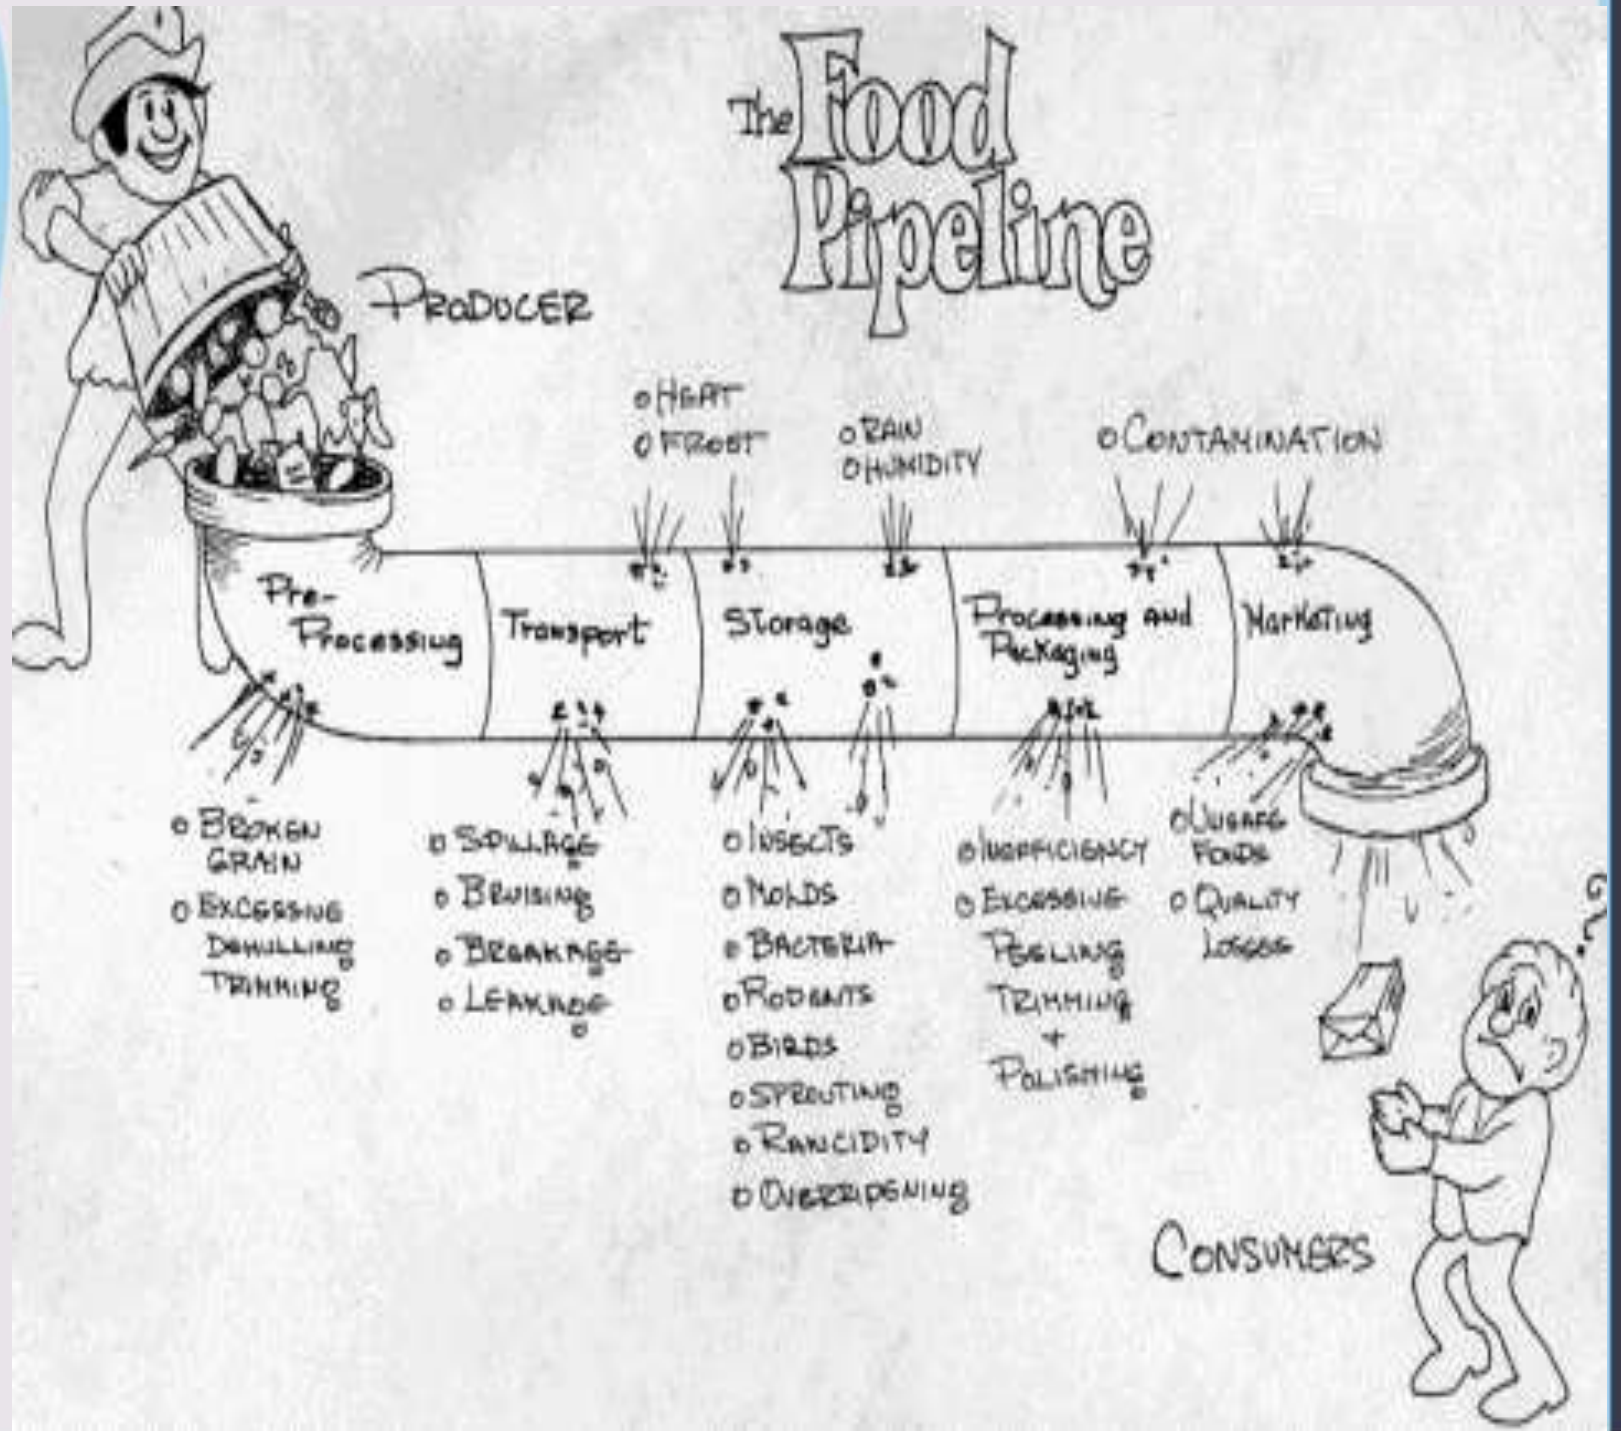 The Food
Pipeline
PRODUCER
o HEAT
o FROST
o RAIN
o HUMIDITY
o CONTAMINATION
Pre-
Processing
Transport
Storage
Processing AND
Packaging
Marketing
o BROKEN
GRAIN
o EXCESSIVE
DEHULLING
TRIMMING
o SPILLAGE
o BRUISING
o BREAKAGE
o LEAKAGE
o INSECTS
o MOLDS
o BACTERIA
o RODENTS
o BIRDS
o SPROUTING
o RANCIDITY
o OVERRIPENING
o INEFFICIENCY
o EXCESSIVE
PEELING
TRIMMING
+
POLISHING
o UNSAFE
FOODS
o QUALITY
LOSSES
CONSUMERS